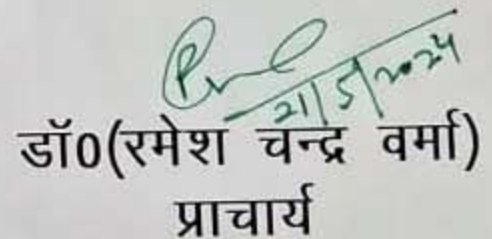 21/5/2024
डॉ0(रमेश चन्द्र वर्मा)
प्राचार्य